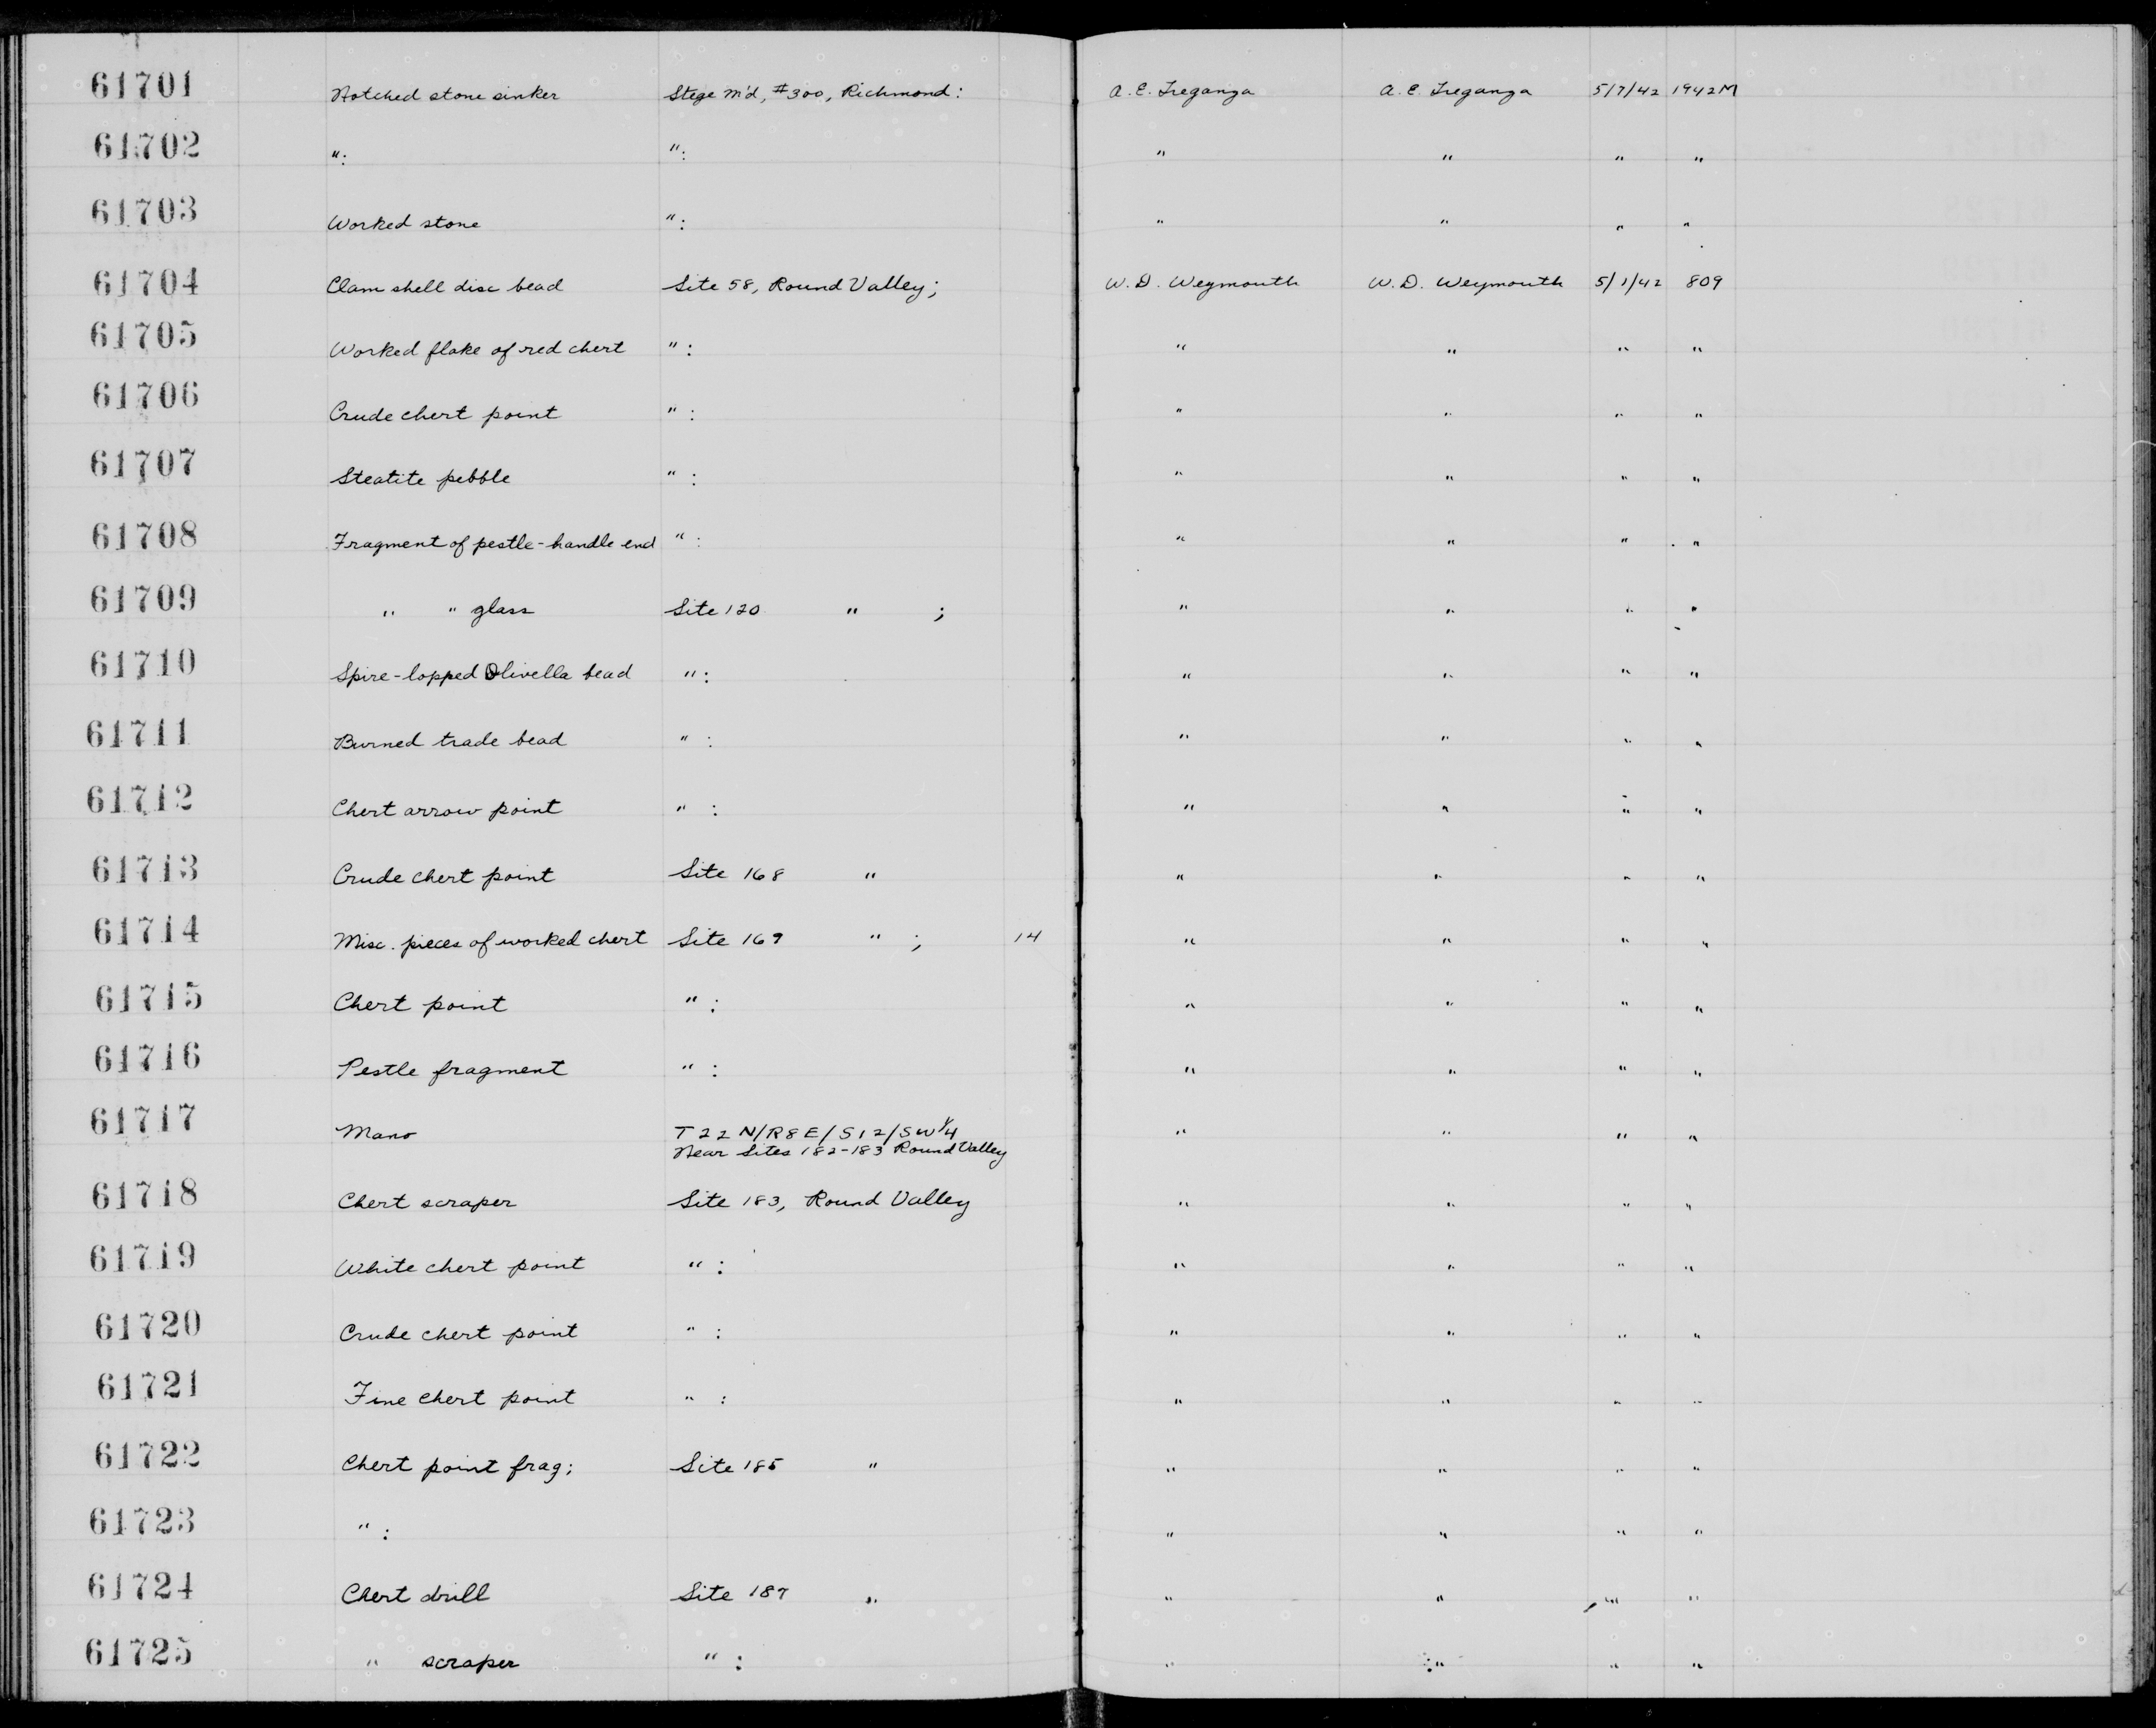 61701 Notched stone sinker Stege M'd, #300, Richmond: A. E. Treganza A. E. Treganza 5/7/42 1942M
61702 ": ": " " " "
61703 Worked stone ": " " " "
61704 Clam shell disc bead Site 58, Round Valley; W. D. Weymouth W. D. Weymouth 5/1/42 809
61705 Worked flake of red chert ": " " " "
61706 Crude chert point " : " " " "
61707 Steatite pebble " : " " " "
61708 Fragment of pestle-handle end " : " " " "
61709 " " glass Site 120 " ; " " " "
61710 Spire-lopped Olivella bead ": " " " "
61711 Burned trade bead " : " " " "
61712 Chert arrow point " : " " " "
61713 Crude chert point Site 168 " " " " "
61714 Misc. pieces of worked chert Site 169 " ; 14 " " " "
61715 Chert point " : " " " "
61716 Pestle fragment " : " " " "
61717 Mano T22N/R8E/S12/SW 1/4 " " " "
Near Sites 182-183 Round Valley
61718 Chert scraper Site 183, Round Valley " " " "
61719 White chert point " : " " " "
61720 Crude chert point " : " " " "
61721 Fine chert point " : " " " "
61722 Chert point frag; Site 185 " " " " "
61723 " : " " " "
61724 Chert drill Site 187 " " " " "
61725 " scraper " : " " " "